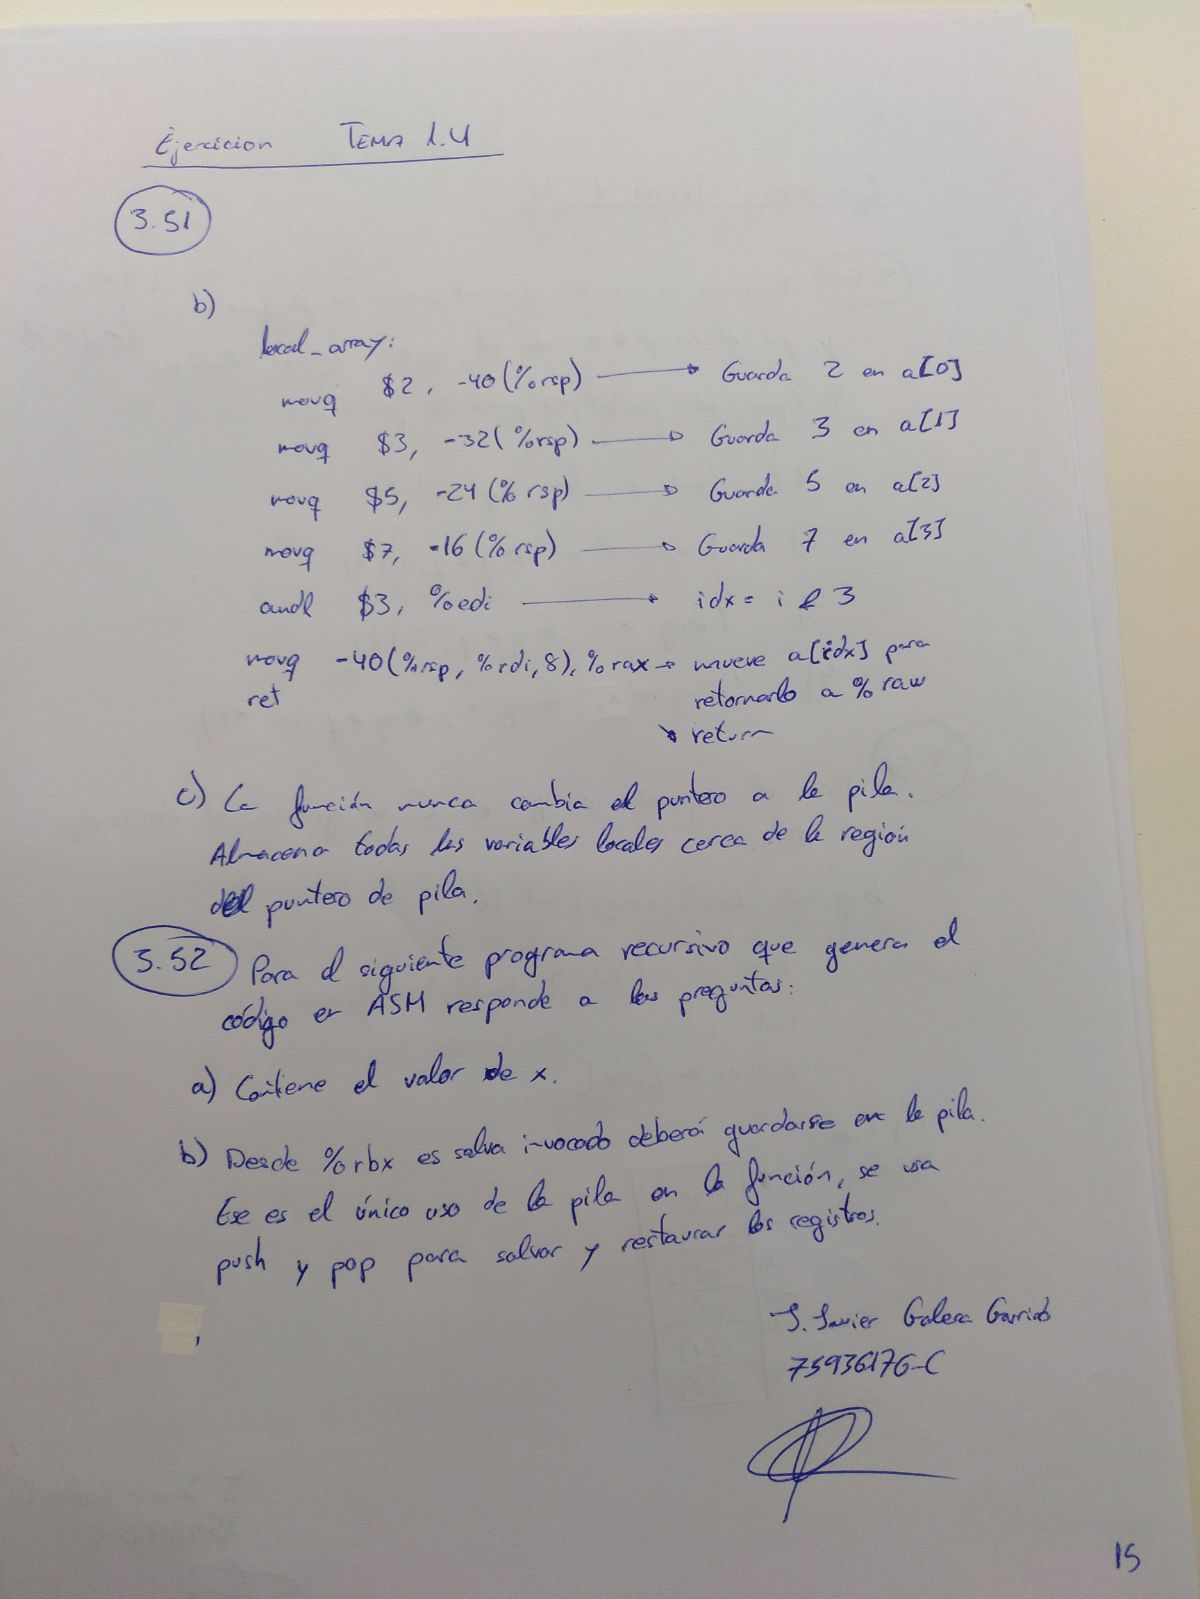 Ejercicion Tema 1.4
3.51
b)
local_array:
movq $2, -40(%rsp) → Guarda 2 en a[0]
movq $3, -32(%rsp) → Guarda 3 en a[1]
movq $5, -24(%rsp) → Guarda 5 en a[2]
movq $7, -16(%rsp) → Guarda 7 en a[3]
andl $3, %edi → idx = i & 3
movq -40(%rsp, %rdi, 8), %rax → mueve a[idx] para
ret retornarlo a %raw
→ return
c) La función nunca cambia el puntero a la pila.
Almacena todas las variables locales cerca de la región
del puntero de pila.
3.52 Para el siguiente programa recursivo que genera el
código en ASM responde a las preguntas:
a) Contiene el valor de x.
b) Desde %rbx es salva invocado deberá guardarse en la pila.
Ese es el único uso de la pila en la función, se usa
push y pop para salvar y restaurar los registros.
J. Javier Galera Garrido
75936176-C
15